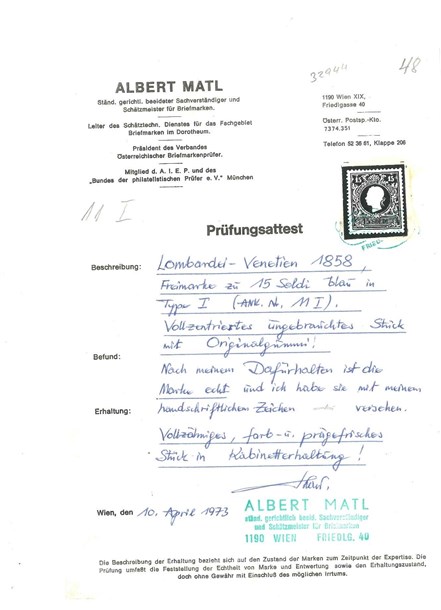 32944
48
ALBERT MATL
Ständ. gerichtl. beeideter Sachverständiger und
Schätzmeister für Briefmarken.
Leiter des Schätztechn. Dienstes für das Fachgebiet
Briefmarken im Dorotheum.
Präsident des Verbandes
Österreichischer Briefmarkenprüfer.
Mitglied d. A. I. E. P. und des
„Bundes der philatelistischen Prüfer e. V." München
1190 Wien XIX,
Friedlgasse 40
Österr. Postsp.-Kto.
7374.351
Telefon 52 36 81, Klappe 206
15 15
FRIEDL
11 I
Prüfungsattest
Beschreibung: Lombardei-Venetien 1858,
Freimarke zu 15 Soldi blau in
Type I (ANK. Nr. 11 I).
Vollzentriertes ungebrauchtes Stück
mit Originalgummi!
Befund: Nach meinem Dafürhalten ist die
Marke echt und ich habe sie mit meinem
Erhaltung: handschriftlichen Zeichen versehen.
Vollzähniges, farb- u. prägefrisches
Stück in Kabinetterhaltung!
Wien, den 10. April 1973
ALBERT MATL
ständ. gerichtlich beeid. Sachverständiger
und Schätzmeister für Briefmarken
1190 WIEN FRIEDLG. 40
Die Beschreibung der Erhaltung bezieht sich auf den Zustand der Marken zum Zeitpunkt der Expertise. Die
Prüfung umfaßt die Feststellung der Echtheit von Marke und Entwertung sowie den Erhaltungszustand,
doch ohne Gewähr mit Einschluß des möglichen Irrtums.